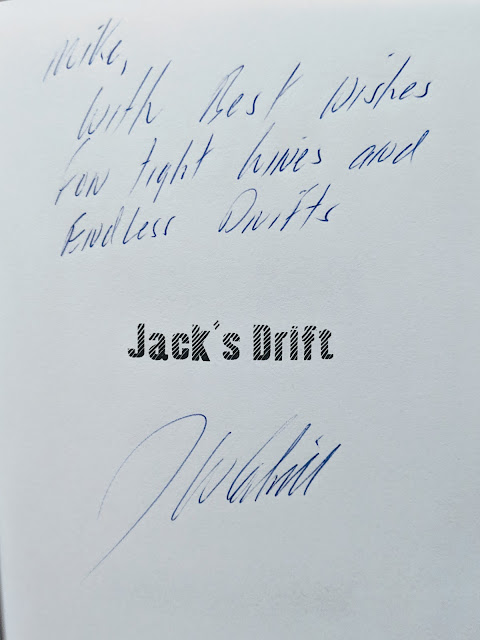 Mike,
With Best Wishes
For tight Lines and
Endless Drifts
Jack's Drift